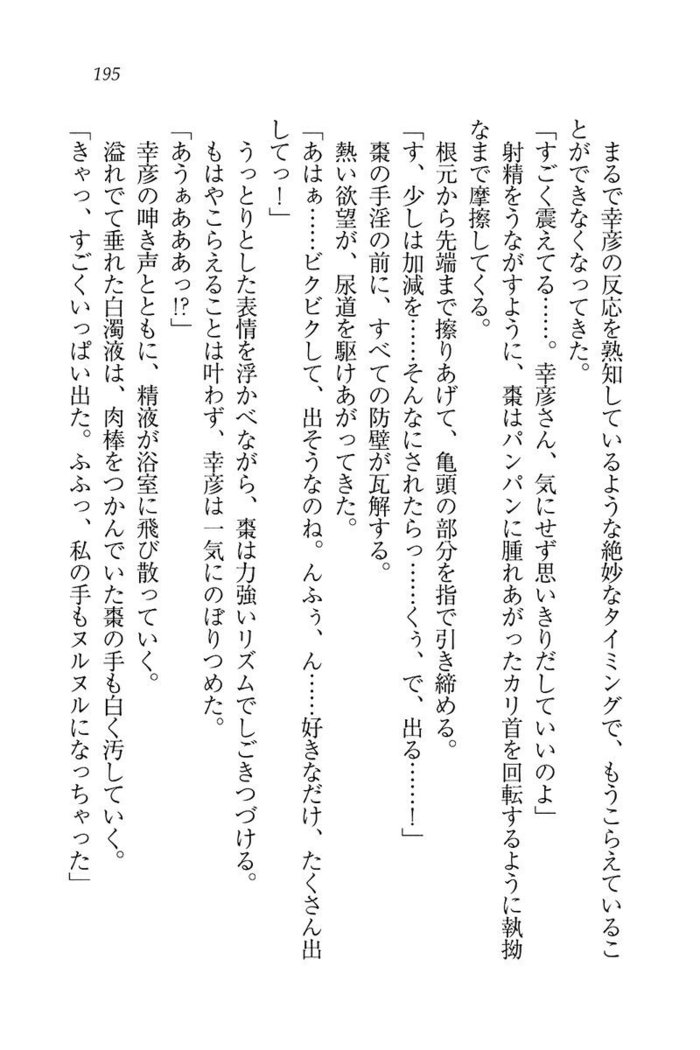 195
まるで幸彦の反応を熟知しているような絶妙なタイミングで、もうこらえているこ
とができなくなってきた。
「すごく震えてる……。幸彦さん、気にせず思いきりだしていいのよ」
射精をうながすように、棗はパンパンに腫れあがったカリ首を回転するように執拗
なまで摩擦してくる。
根元から先端まで擦りあげて、亀頭の部分を指で引き締める。
「す、少しは加減を……そんなにされたらっ……くぅ、で、出る……！」
棗の手淫の前に、すべての防壁が瓦解する。
熱い欲望が、尿道を駆けあがってきた。
「あはぁ……ビクビクして、出そうなのね。んふぅ、ん……好きなだけ、たくさん出
してっ！」
うっとりとした表情を浮かべながら、棗は力強いリズムでしごきつづける。
もはやこらえることは叶わず、幸彦は一気にのぼりつめた。
「あうぁあああっ!?」
幸彦の呻き声とともに、精液が浴室に飛び散っていく。
溢れでて垂れた白濁液は、肉棒をつかんでいた棗の手も白く汚していく。
「きゃっ、すごくいっぱい出た。ふふっ、私の手もヌルヌルになっちゃった」